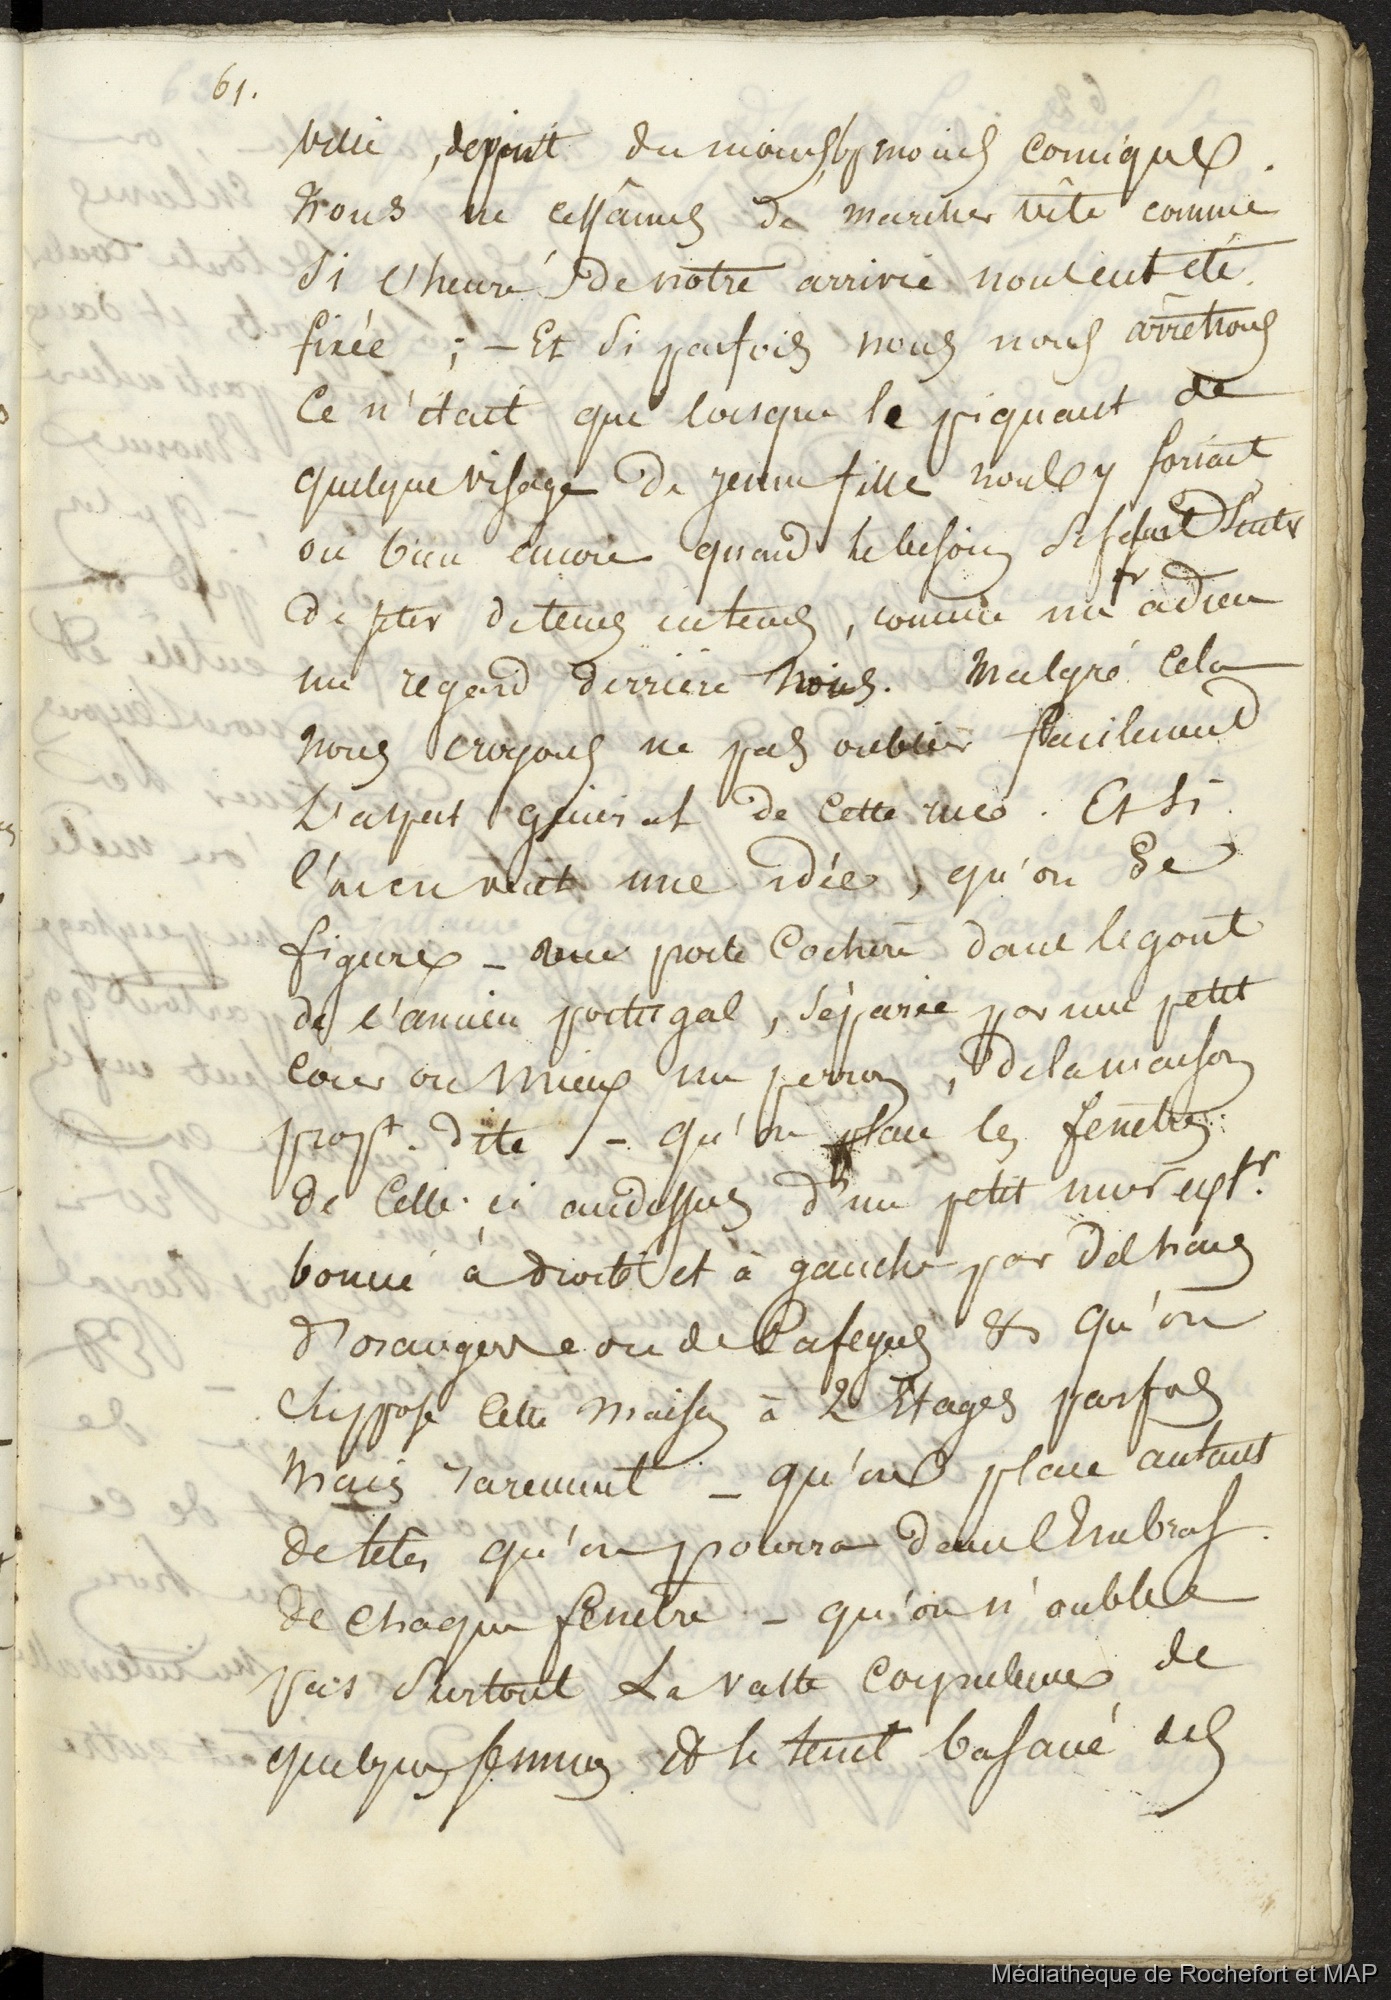 61.
, depeint du moins les moins comiques.
Nous ne cessâmes de marcher vîte comme
Si l'heure de notre arrivée nous eut été
fixée ; – Et Si parfois nous nous arrêtions
Ce n'était que lorsque le piquant de
quelque visage de jeune fille nous y forçait
ou bien encore quand le besoin se fesait Sentir
de jeter de tems en tems, comme un adieu
un regard derrière nous. Malgré cela
nous croyons ne pas oublier facilement
L'aspect général de cette rue. Et Si
l'on en veut une idée, qu'on Se
figure – une porte Cochère dans le gout
de l'ancien portugal, Séparée par une petit
Cour ou mieux un perron, de la maison
propt. dite – qu'on place les fenêtres
de Celle-ci audessus d'un petit mur extr.
borné à droite et à gauche par des haies
d'orangers ou de Cafeyers & qu'on
Suppose Cette maison à 2 Etages parfois
Mais rarement – qu'on place autant
de têtes qu'on pourra dans l'Embras.
de chaque fenêtre – qu'on n'oublie
pas Surtout La vaste Corpulence de
quelques femmes et le teint basané des
Médiathèque de Rochefort et MAP